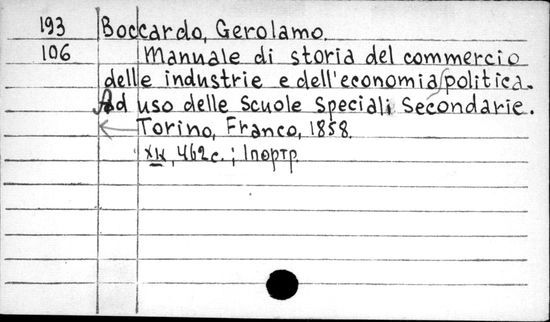 193 Boccardo, Gerolamo.
106 Manuale di storia del commercio
delle industrie e dell'economia politica.
Ad uso delle Scuole Speciali Secondarie.
Torino, Franco, 1858.
462 с.; 1 портр.